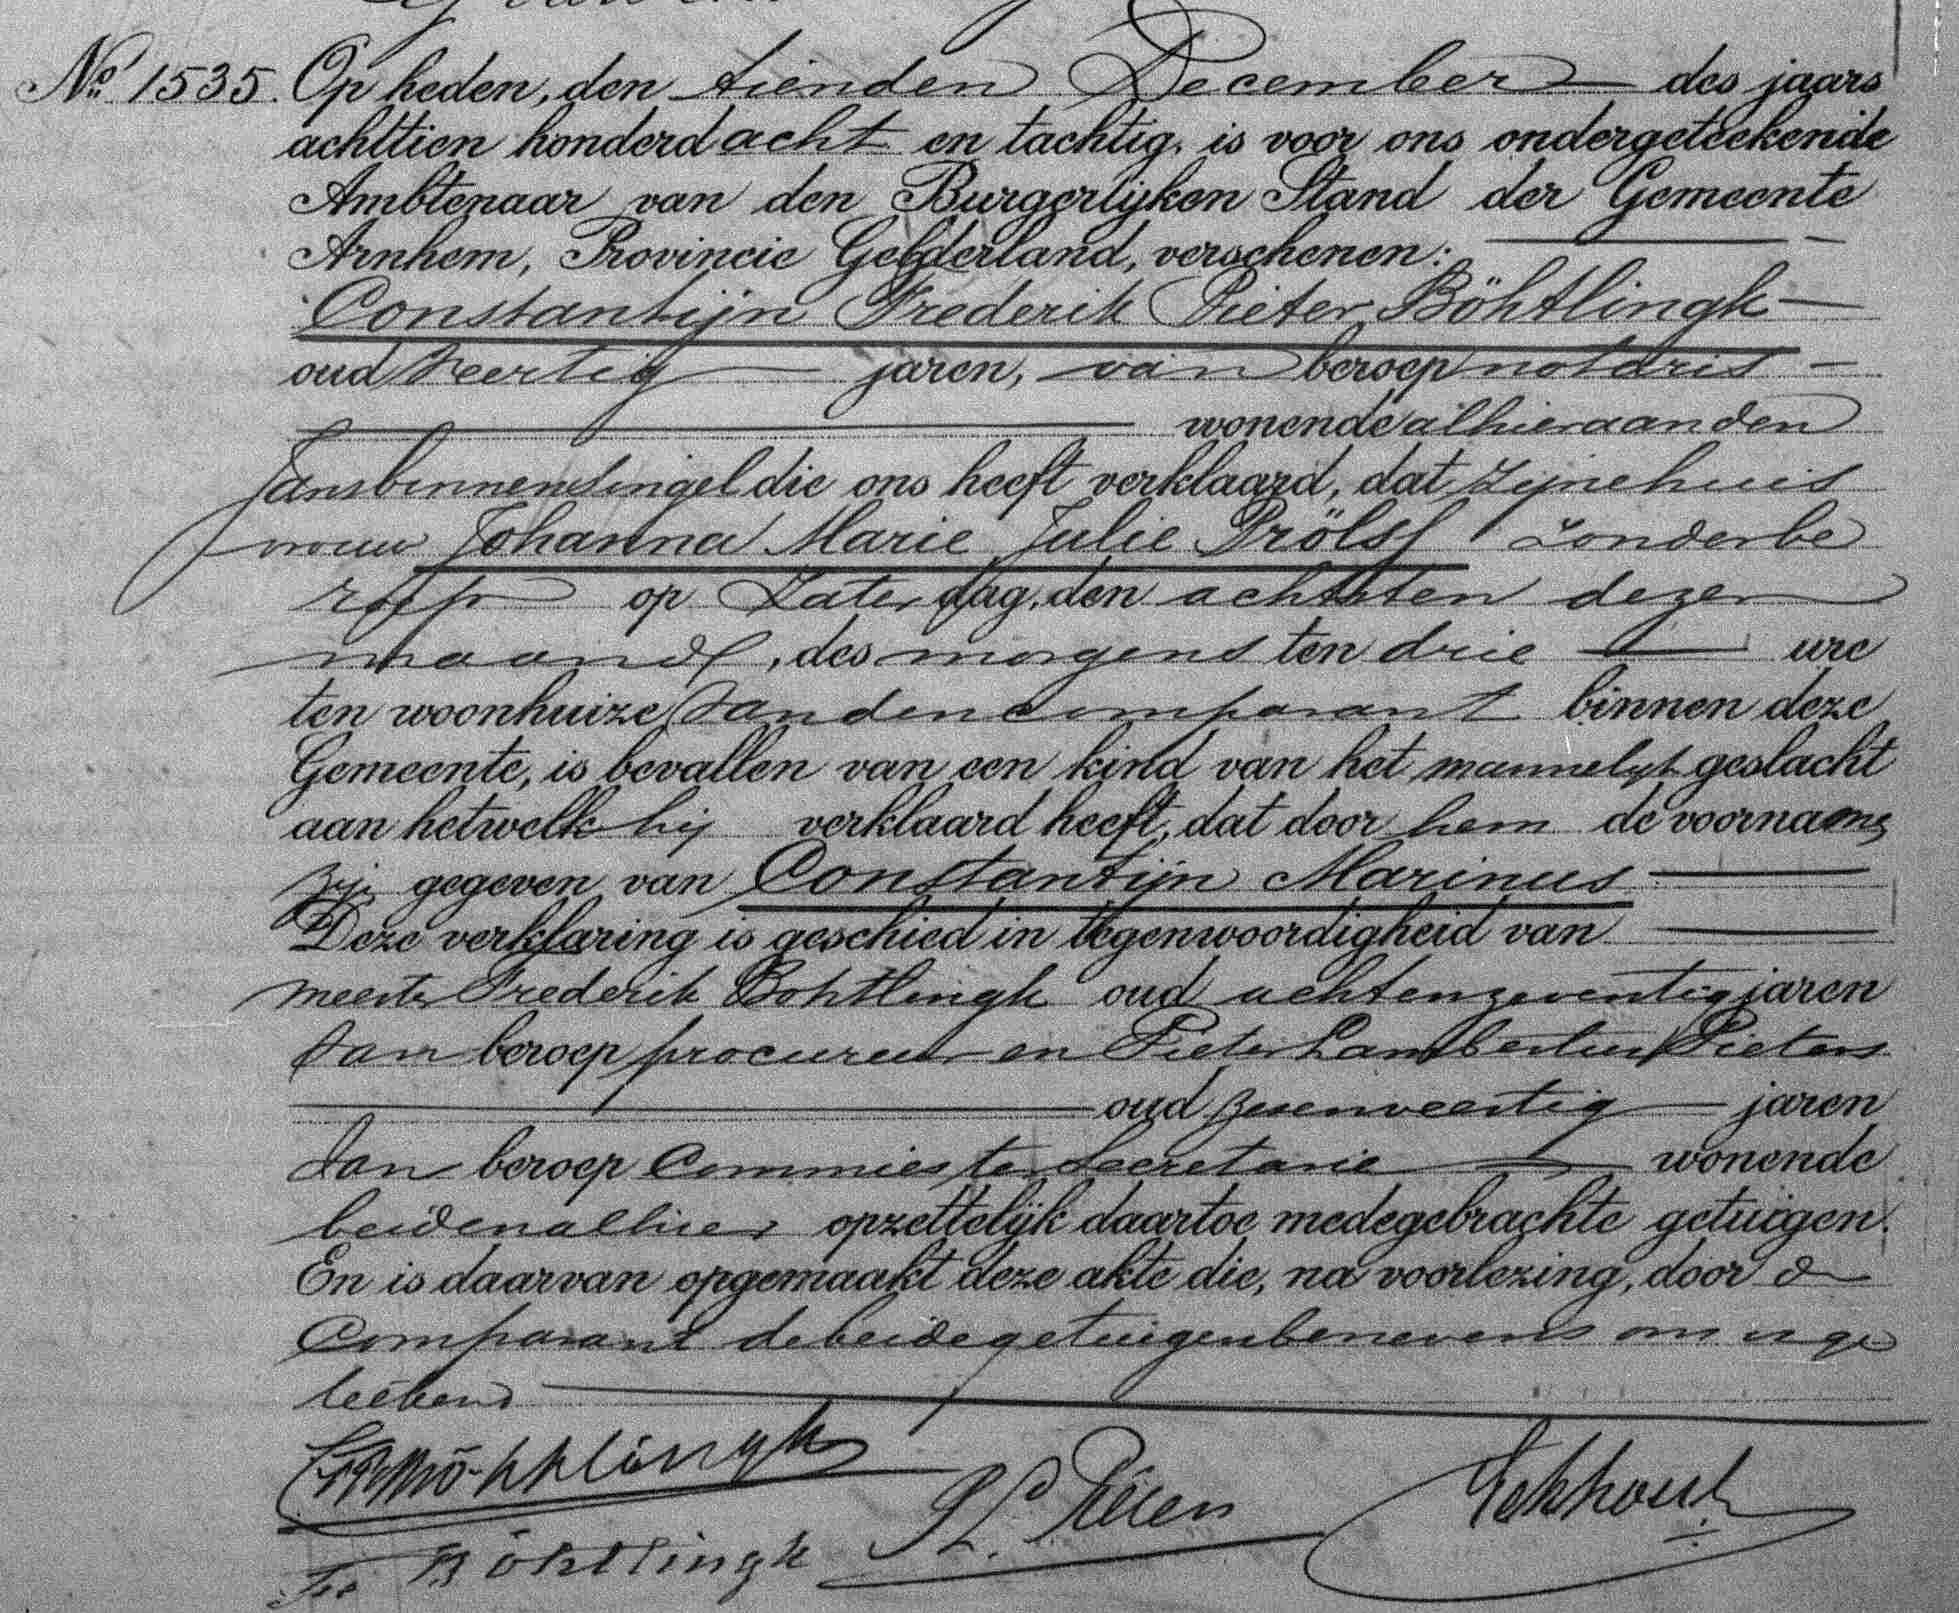 No. 1535. Op heden, den tienden December des jaars
achttien honderd acht en tachtig, is voor ons ondergeteekende
Ambtenaar van den Burgerlijken Stand der Gemeente
Arnhem, Provincie Gelderland, verschenen:
Constantijn Frederik Pieter Böhtlingk
oud veertig jaren, van beroep notaris
wonende alhier aan den
Jansbinnensingel die ons heeft verklaard, dat zijne huis
vrouw Johanna Marie Julie Prölsf zonder be
roep op Zaterdag, den achtsten dezer
maand, des morgens ten drie ure
ten woonhuize van den comparant binnen deze
Gemeente, is bevallen van een kind van het mannelijk geslacht
aan hetwelk hij verklaard heeft, dat door hem de voornamen
zijn gegeven van Constantijn Marinus
Deze verklaring is geschied in tegenwoordigheid van
meester Frederik Bohtlingk oud achtenzeventig jaren
van beroep procureur en Pieter Lambertus Pieters
oud zesenveertig jaren
van beroep Commies ter Secretarie wonende
beiden alhier opzettelijk daartoe medegebrachte getuigen.
En is daarvan opgemaakt deze akte die, na voorlezing, door de
Comparant de beide getuigen benevens ons is ge
teekend
Böhtlingk
Böhtlingk P L